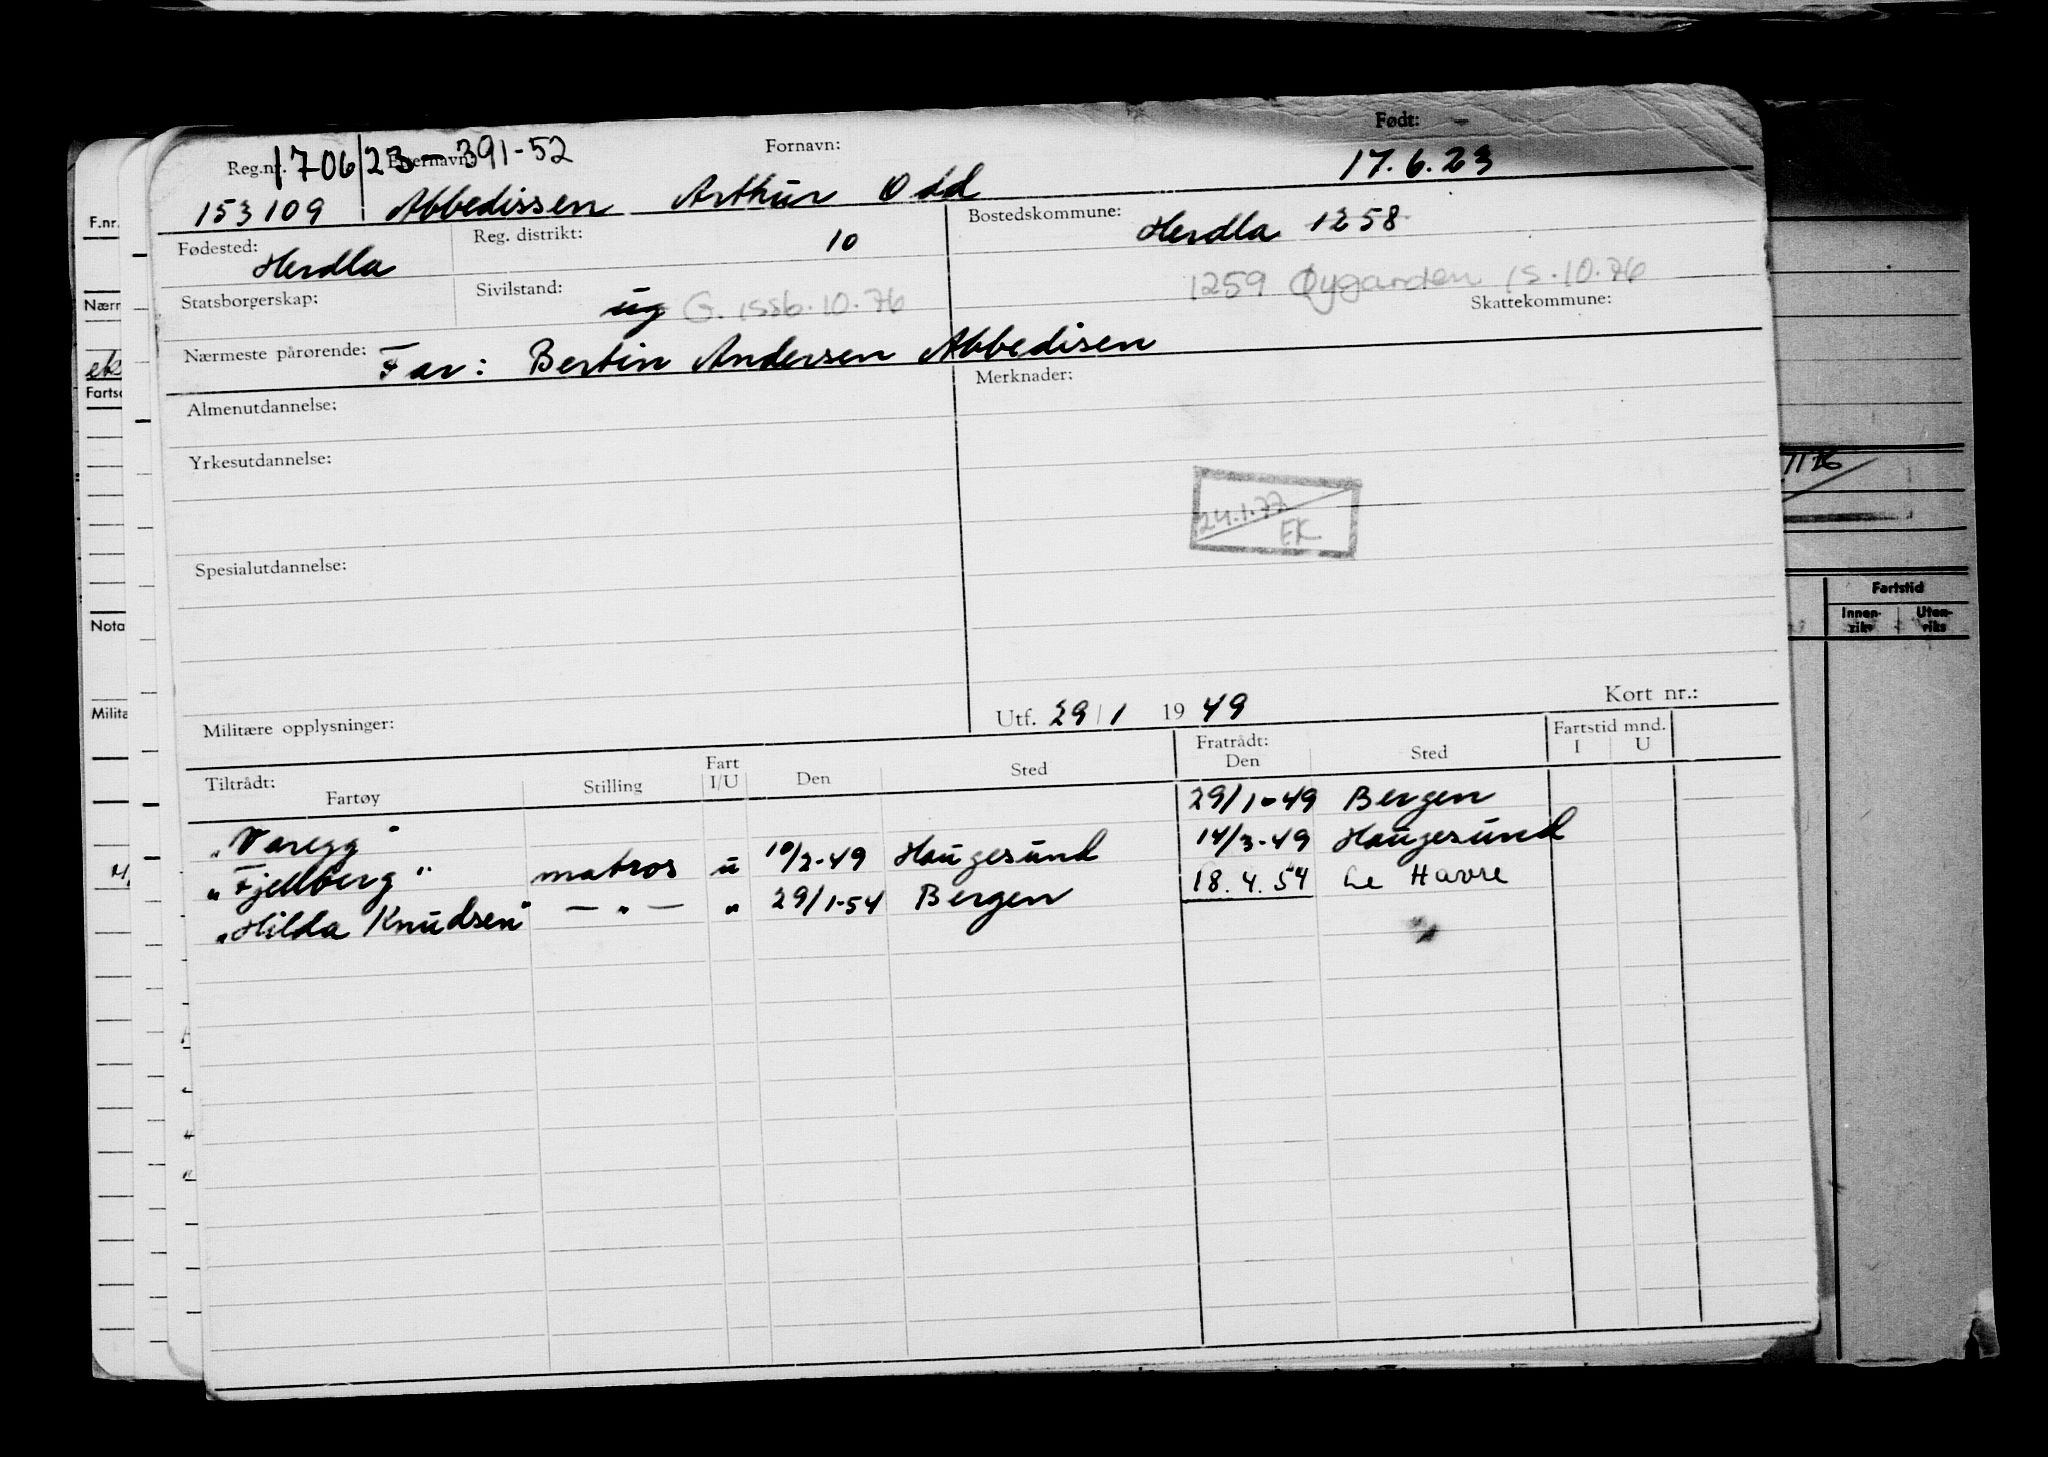 Reg.nr. 170623-391-52 Etternavn: Fornavn: Født:
153109 Abbedissen Arthur Odd 17.6.23
Fødested: Herdla Reg. distrikt: 10 Bostedskommune: Herdla 1258
1259 Øygarden 15.10.76
Statsborgerskap: Sivilstand: ug G. 15.10.76 Skattekommune:
Nærmeste pårørende: Far: Bertin Andersen Abbedisen
Almenutdannelse: Merknader:
Yrkesutdannelse:
24.1.77
EK
Spesialutdannelse:
Militære opplysninger: Utf. 29/1 1949 Kort nr.:
Tiltrådt: Fratrådt: Fartstid mnd.
Fartøy Stilling Fart I/U Den Sted Den Sted I U
"Varegg" 29/1-49 Bergen
"Fjellberg" matros u 10/2-49 Haugesund 14/3-49 Haugesund
"Hilda Knudsen" — " — " 29/1-54 Bergen 18.4.54 Le Havre
F.nr.
Nærm
eks
Fartsc
Nota
Milita
Fartstid
Innen-riks Uten-riks